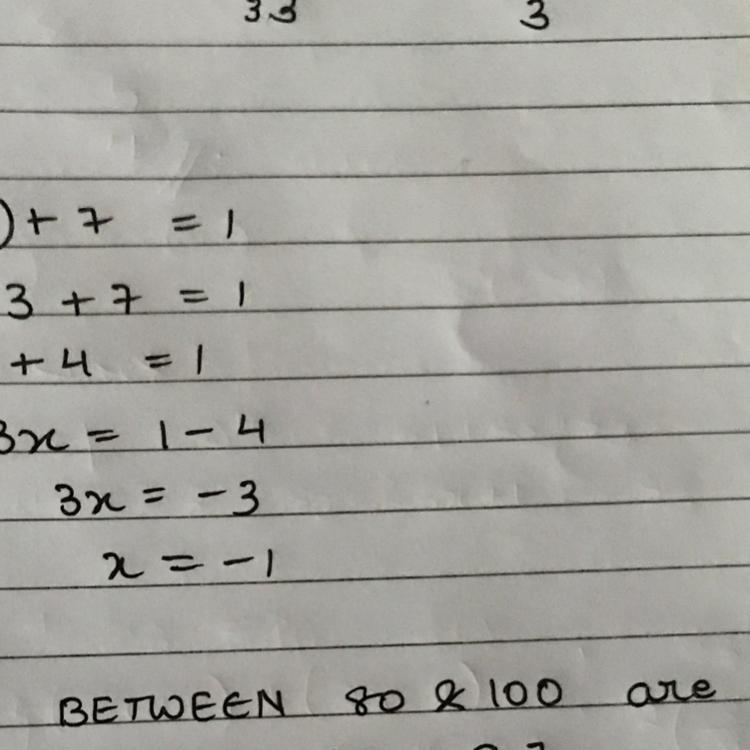 33 3
) + 7 = 1
3 + 7 = 1
+ 4 = 1
3x = 1 - 4
3x = -3
x = -1
BETWEEN 80 & 100 are